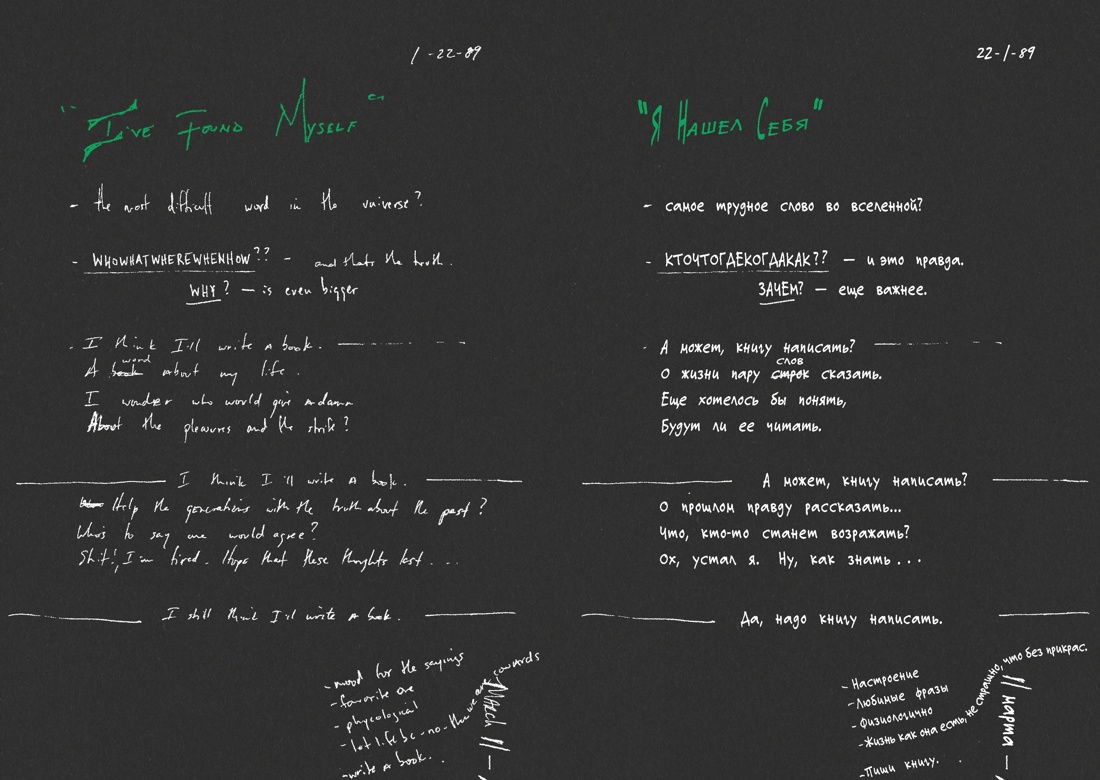 1-22-89
"I've Found Myself"
- the most difficult word in the universe?
- WHOWHATWHEREWHENHOW?? - and thats the truth.
WHY? — is even bigger
- I think I'll write a book.
word
A book about my life.
I wonder who would give a damn
About the pleasures and the strife?
I think I'll write a book.
Help the generations with the truth about the past?
Who's to say one would agree?
Shit!, I'm tired. Hope that these thoughts last...
I still think I'll write a book.
- mood for the sayings
- favorite one
- phycological
- let life be - no - the we are cowards
- write a book..
March 11 —
22-1-89
"Я Нашел Себя"
- самое трудное слово во вселенной?
- КТОЧТОГДЕКОГДАКАК?? — и это правда.
ЗАЧЕМ? — еще важнее.
- А может, книгу написать?
слов
О жизни пару строк сказать.
Еще хотелось бы понять,
Будут ли ее читать.
А может, книгу написать?
О прошлом правду рассказать...
Что, кто-то станет возражать?
Ох, устал я. Ну, как знать...
Да, надо книгу написать.
- Настроение
- Любимые фразы
- Физиологично
- Жизнь как она есть, не страшно, что без прикрас.
- Пиши книгу. .
11 марта —